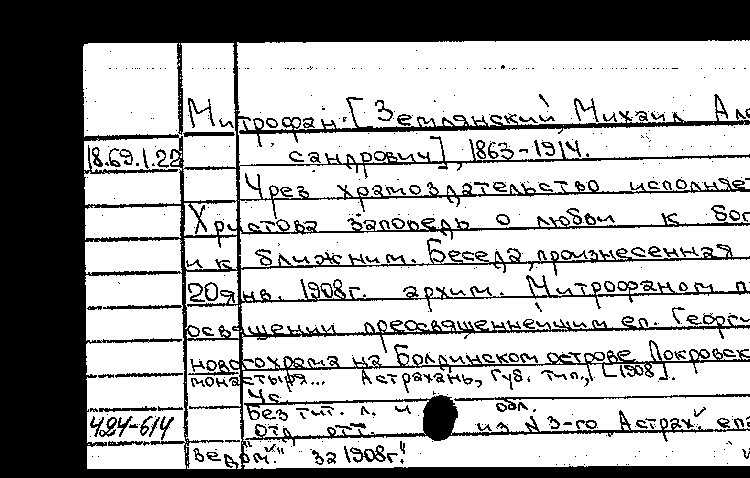 Митрофан [Землянский Михаил Але
18.69.1.22 сандрович], 1863-1914.
Чрез храмоздательство исполняет
Христова заповедь о любви к бог
и к ближним. Беседа, произнесенная
20 янв. 1908г. архим. Митрофаном п
освящении преосвященнейшим еп. Георги
новогохрама на Болдинском острове Покровск
монастыря... Астрахань, Губ. тип., [1908].
4с.
Без тит. л. и обл.
424-614 Отд. отт. из N 3-го "Астрах. епа
ведом." за 1908г.